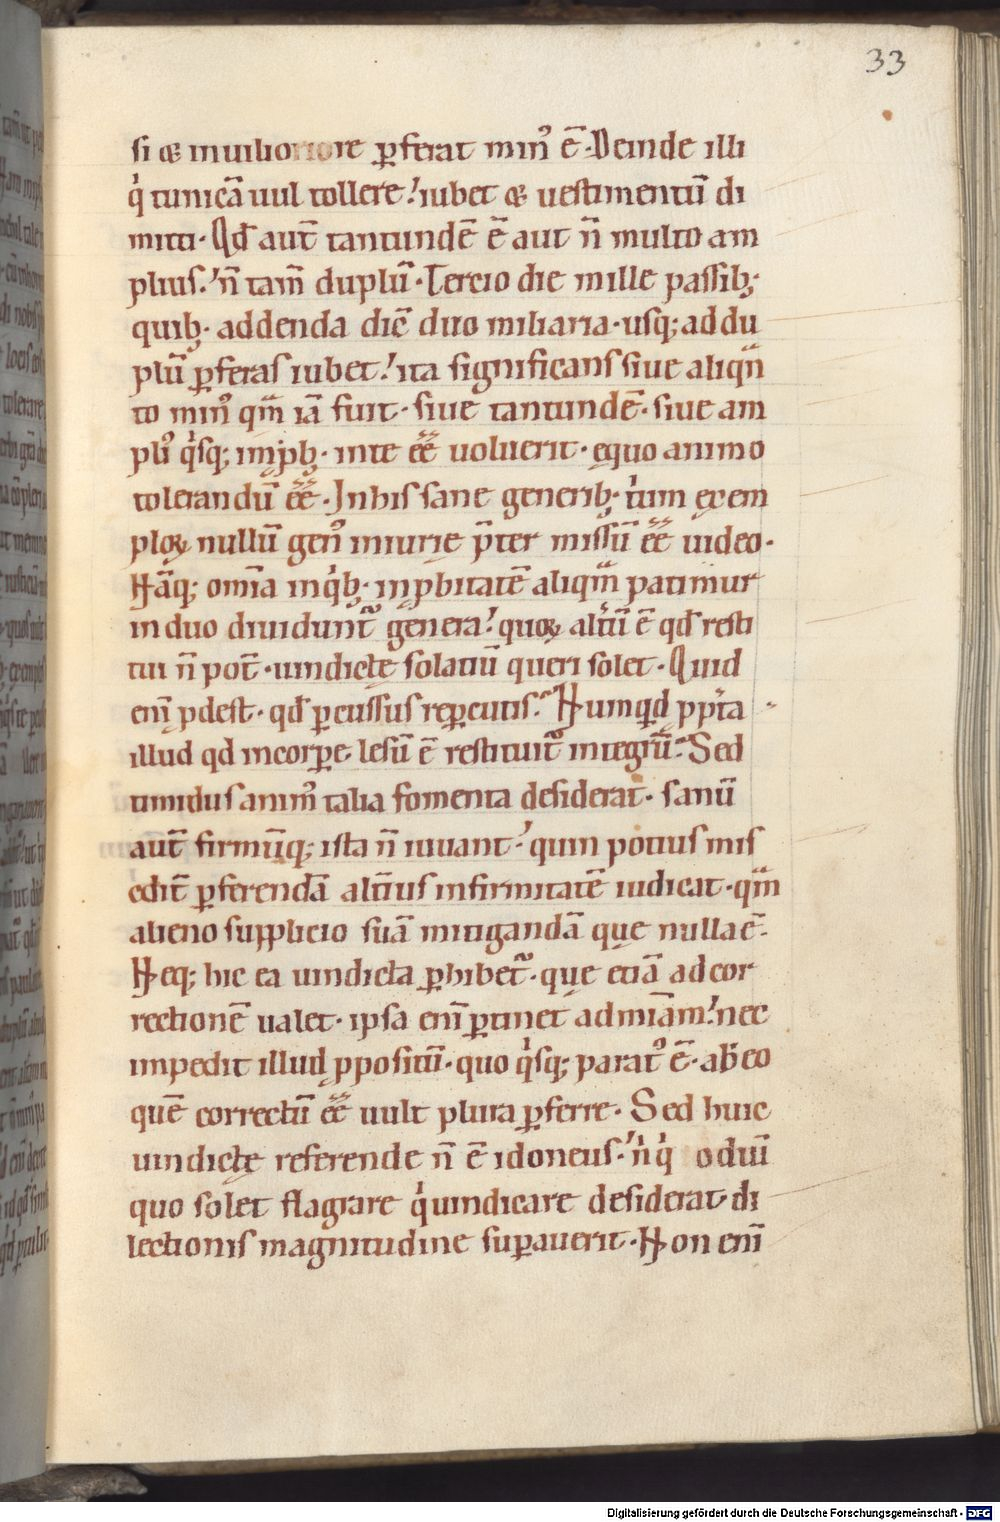 33
si & in uiliore ꝑferat min᷒ ē· Deinde illi
q̇ tunicā uul tollere! iubet & uestimentū di
mitti· Qđ aut̄ tantundē ē aut n̄ multo am
plius! n̄ tam̄ duplū· Tercio die mille passib;
quib; addenda dic̄ duo miliaria· usq; ad du
plū ꝑferas iubet! ita significans siue aliqn̄
to min᷒ qm̄ iā fuit· siue tantundē· siue am
pli᷒ q̇sq; inꝓb; in te ēē uoluerit· equo animo
tolerandū ēē· In his sane generib; t'um exem
ploꝝ nullū gen᷒ iniurię p̄ter missū ēē uideo·
Nāq; om̄ia in q̇b; inꝓbitatē aliqm̄ patimur
in duo diuidunt᷑ genera! quoꝝ alt'ū ē qđ resti
tui n̄ pot̄· uindictę solatiū queri solet· Quid
eni̅ ꝓdest· qđ ꝑcussus reꝑcutis? Numqd ꝓpt'a
illud qđ in corꝑe lesū ē restituit᷑ integrū? Sed
tumidus anim᷒ talia fomenta desiderat· sanū
aut̄ firmūq; ista n̄ iuuant! quin potius mis
edit̄ ꝑferendā alt̄ius infirmitatē iudicat· qm̄
alieno supplicio suā mitigandā que nulla ē·
Neq; hic ea uindicta ꝓhibet᷑· que etiā ad cor
rectionē ualet· ipsa eni̅ ꝑtinet ad miāin! nec
impedit illud ꝓpositū· quo q̇sq; parat᷒ ē· ab eo
quē correctū ēē uult plura ꝑferre· Sed huic
uindictę referende n̄ ē idoneus! n̍ q̍ odiū
quo solet flagrare q̇ uindicare desiderat· di
lectionis magnitudine suꝑauerit· Non eni̅
Digitalisierung gefördert durch die Deutsche Forschungsgemeinschaft - DFG